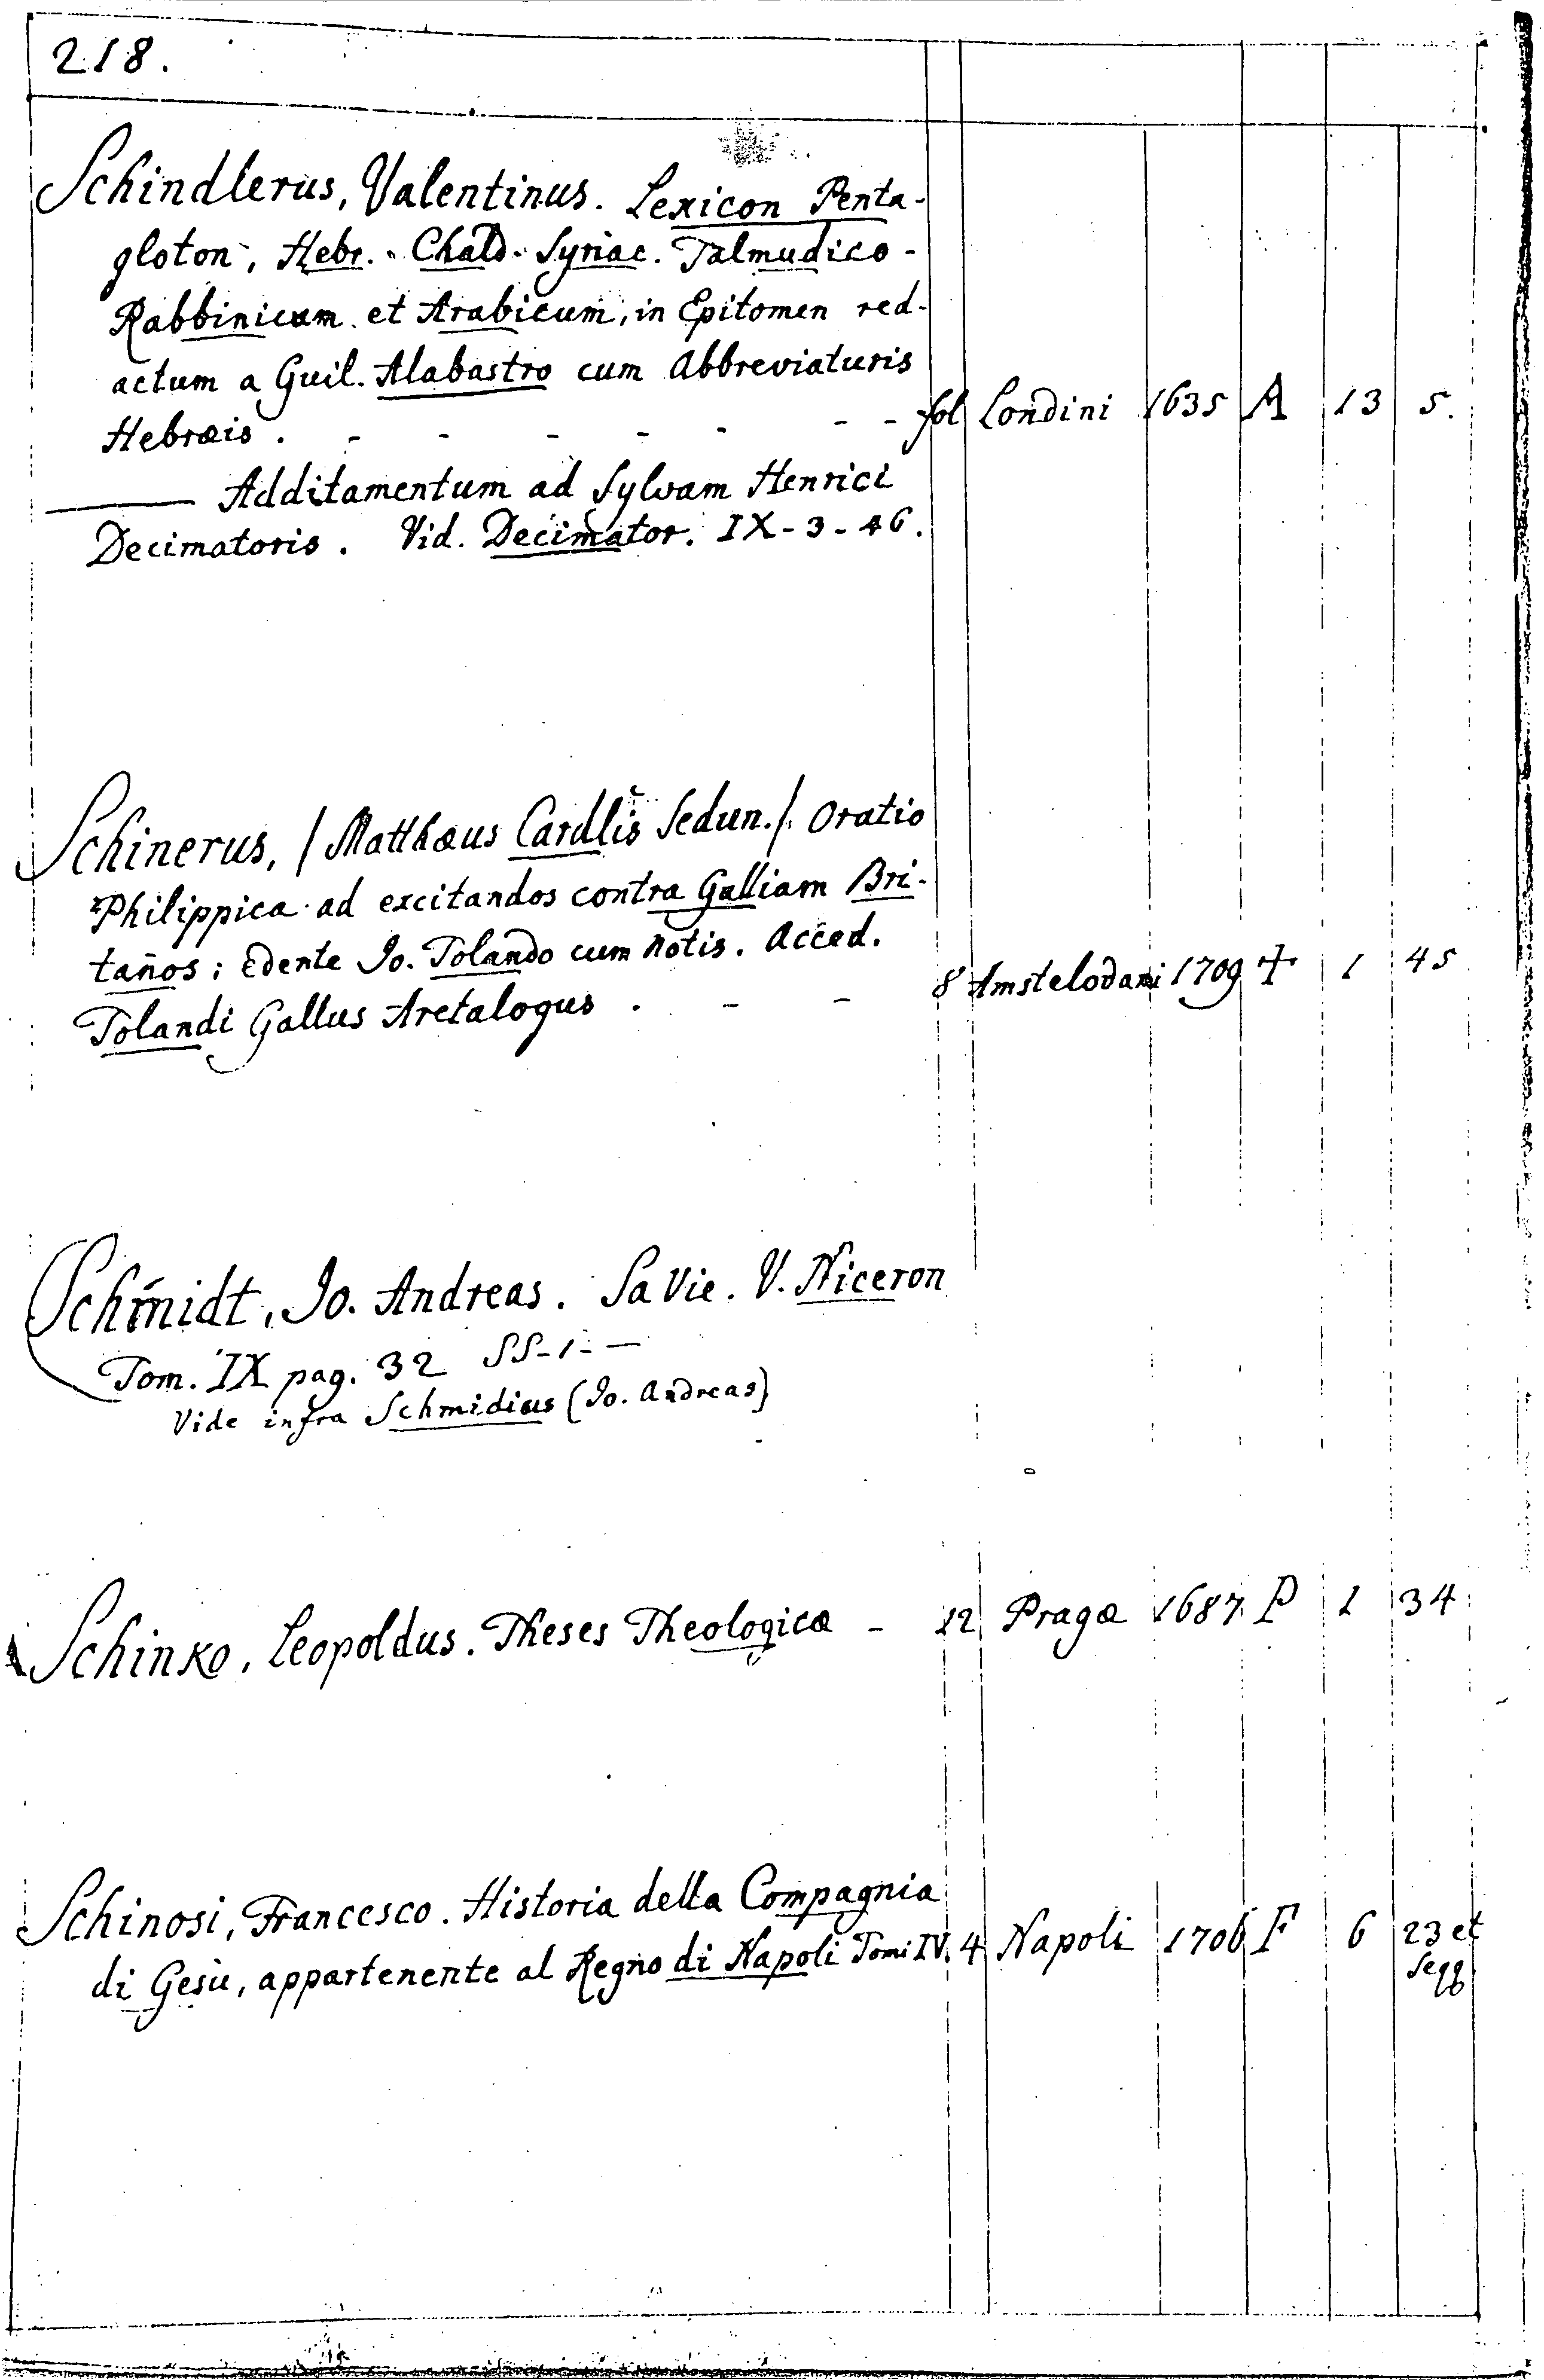 218.
Schindlerus, Valentinus. Lexicon Penta-
gloton, Hebr. - Chald - Syriac. Talmudico -
Rabbinicum et Arabicum, in Epitomen red-
actum a Guil. Alabastro cum Abbreviaturis
Hebræis . - - - - - - - fol Londini 1635 A 13 5.
——— Additamentum ad Sylvam Henrici
Decimatoris. Vid. Decimator. IX-3-46.
Schinerus, / Matthæus Cardlis Sedun./. Oratio
Philippica ad excitandos contra Galliam Bri-
tan̄os; Edente Jo. Tolando cum Notis. Acced.
Tolandi Gallus Aretalogus . - - 8 Amstelodami 1709 + 1 45
Schmidt, Jo. Andreas. Sa Vie. V. Niceron
Tom. IX pag. 32 SS-1- —
Vide infra Schmidius (Jo. Andreas)
Schinko, Leopoldus. Theses Theologicæ - 12 Pragæ 1687 P 1 34
Schinosi, Francesco. Historia della Compagnia
di Gesù, appartenente al Regno di Napoli Tomi IV. 4 Napoli 1706 F 6 23 et
seqq